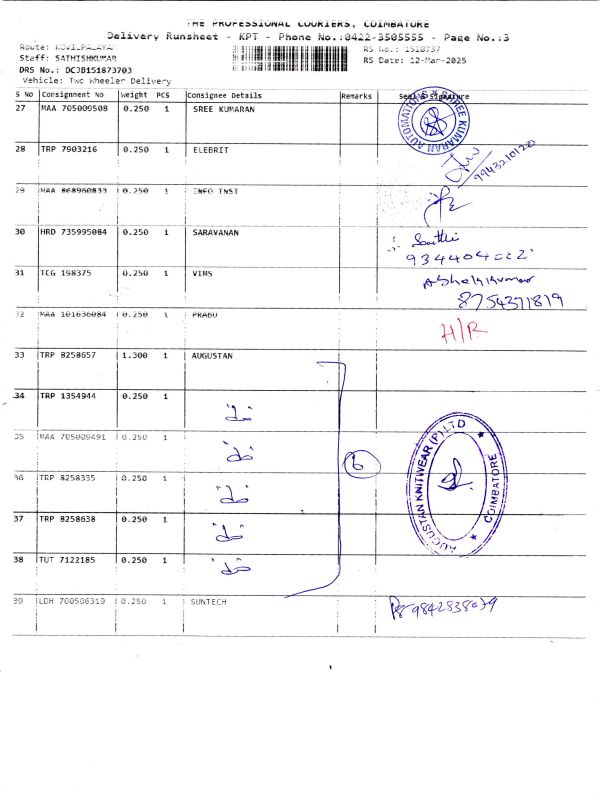 THE PROFESSIONAL COURIERS, COIMBATORE
Delivery Runsheet - KPT - Phone No.:0422-3505555 - Page No.:3
Route: KOVILPALAYAM
Staff: SATHISHKUMAR
DRS No.: DCJB151873703
Vehicle: Two Wheeler Delivery
RS No.: 1518737
RS Date: 12-Mar-2025
S No Consignment No Weight PCS Consignee Details Remarks Seal & Signature
27 MAA 705009508 0.250 1 SREE KUMARAN
SREE KUMARAN AUTOMATIONS
28 TRP 7903216 0.250 1 ELEBRIT
29 MAA 868960833 0.250 1 INFO INST
30 HRD 735995084 0.250 1 SARAVANAN
31 TCG 198375 0.250 1 VIMS
8754371819
32 MAA 101636084 0.250 1 PRABU H/R
33 TRP 8258657 1.300 1 AUGUSTAN
34 TRP 1354944 0.250 1
35 MAA 705009491 0.250 1
36 TRP 8258335 0.250 1
37 TRP 8258638 0.250 1
38 TUT 7122185 0.250 1
6
AUGUSTAN KNITWEAR (P) LTD
COIMBATORE
39 LDH 700506319 0.250 1 SUNTECH